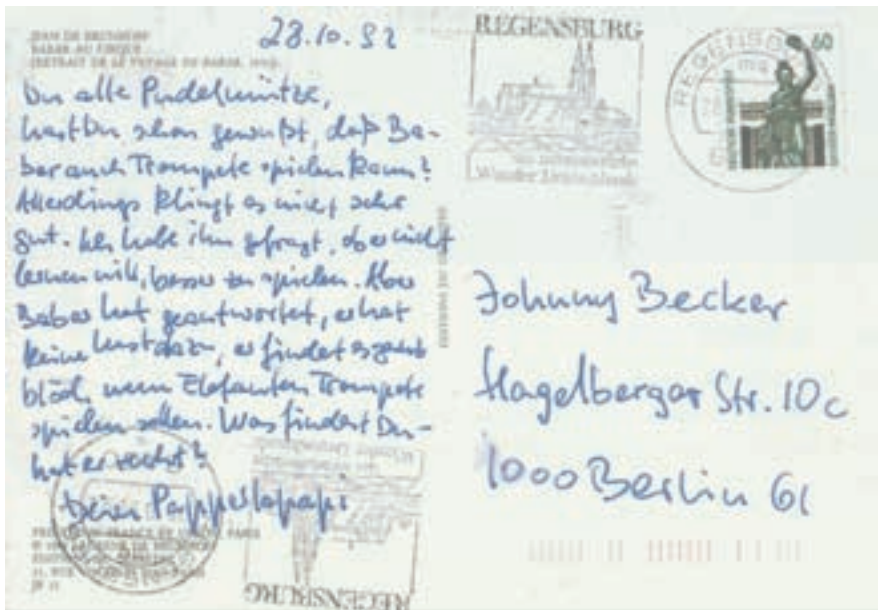 JEAN DE BRUNHOFF
BABAR AU CIRQUE
(EXTRAIT DE LE VOYAGE DE BABAR,
28.10.92
Du alte Pudelmütze,
hast Du schon gewußt, daß Ba-
bar auch Trompete spielen kann?
Allerdings klingt es nicht sehr
gut. Ich habe ihn gefragt, ob er nicht
lernen will, besser zu spielen. Aber
Babar hat geantwortet, er hat
keine Lust dazu, er findet es ganz
blöd, wenn Elefanten Trompete
spielen sollen. Was findest Du –
hat er recht?
Dein Papperlapapi
REGENSBURG
60
Johnny Becker
Hagelberger Str. 10c
1000 Berlin 61
REGENSBURG